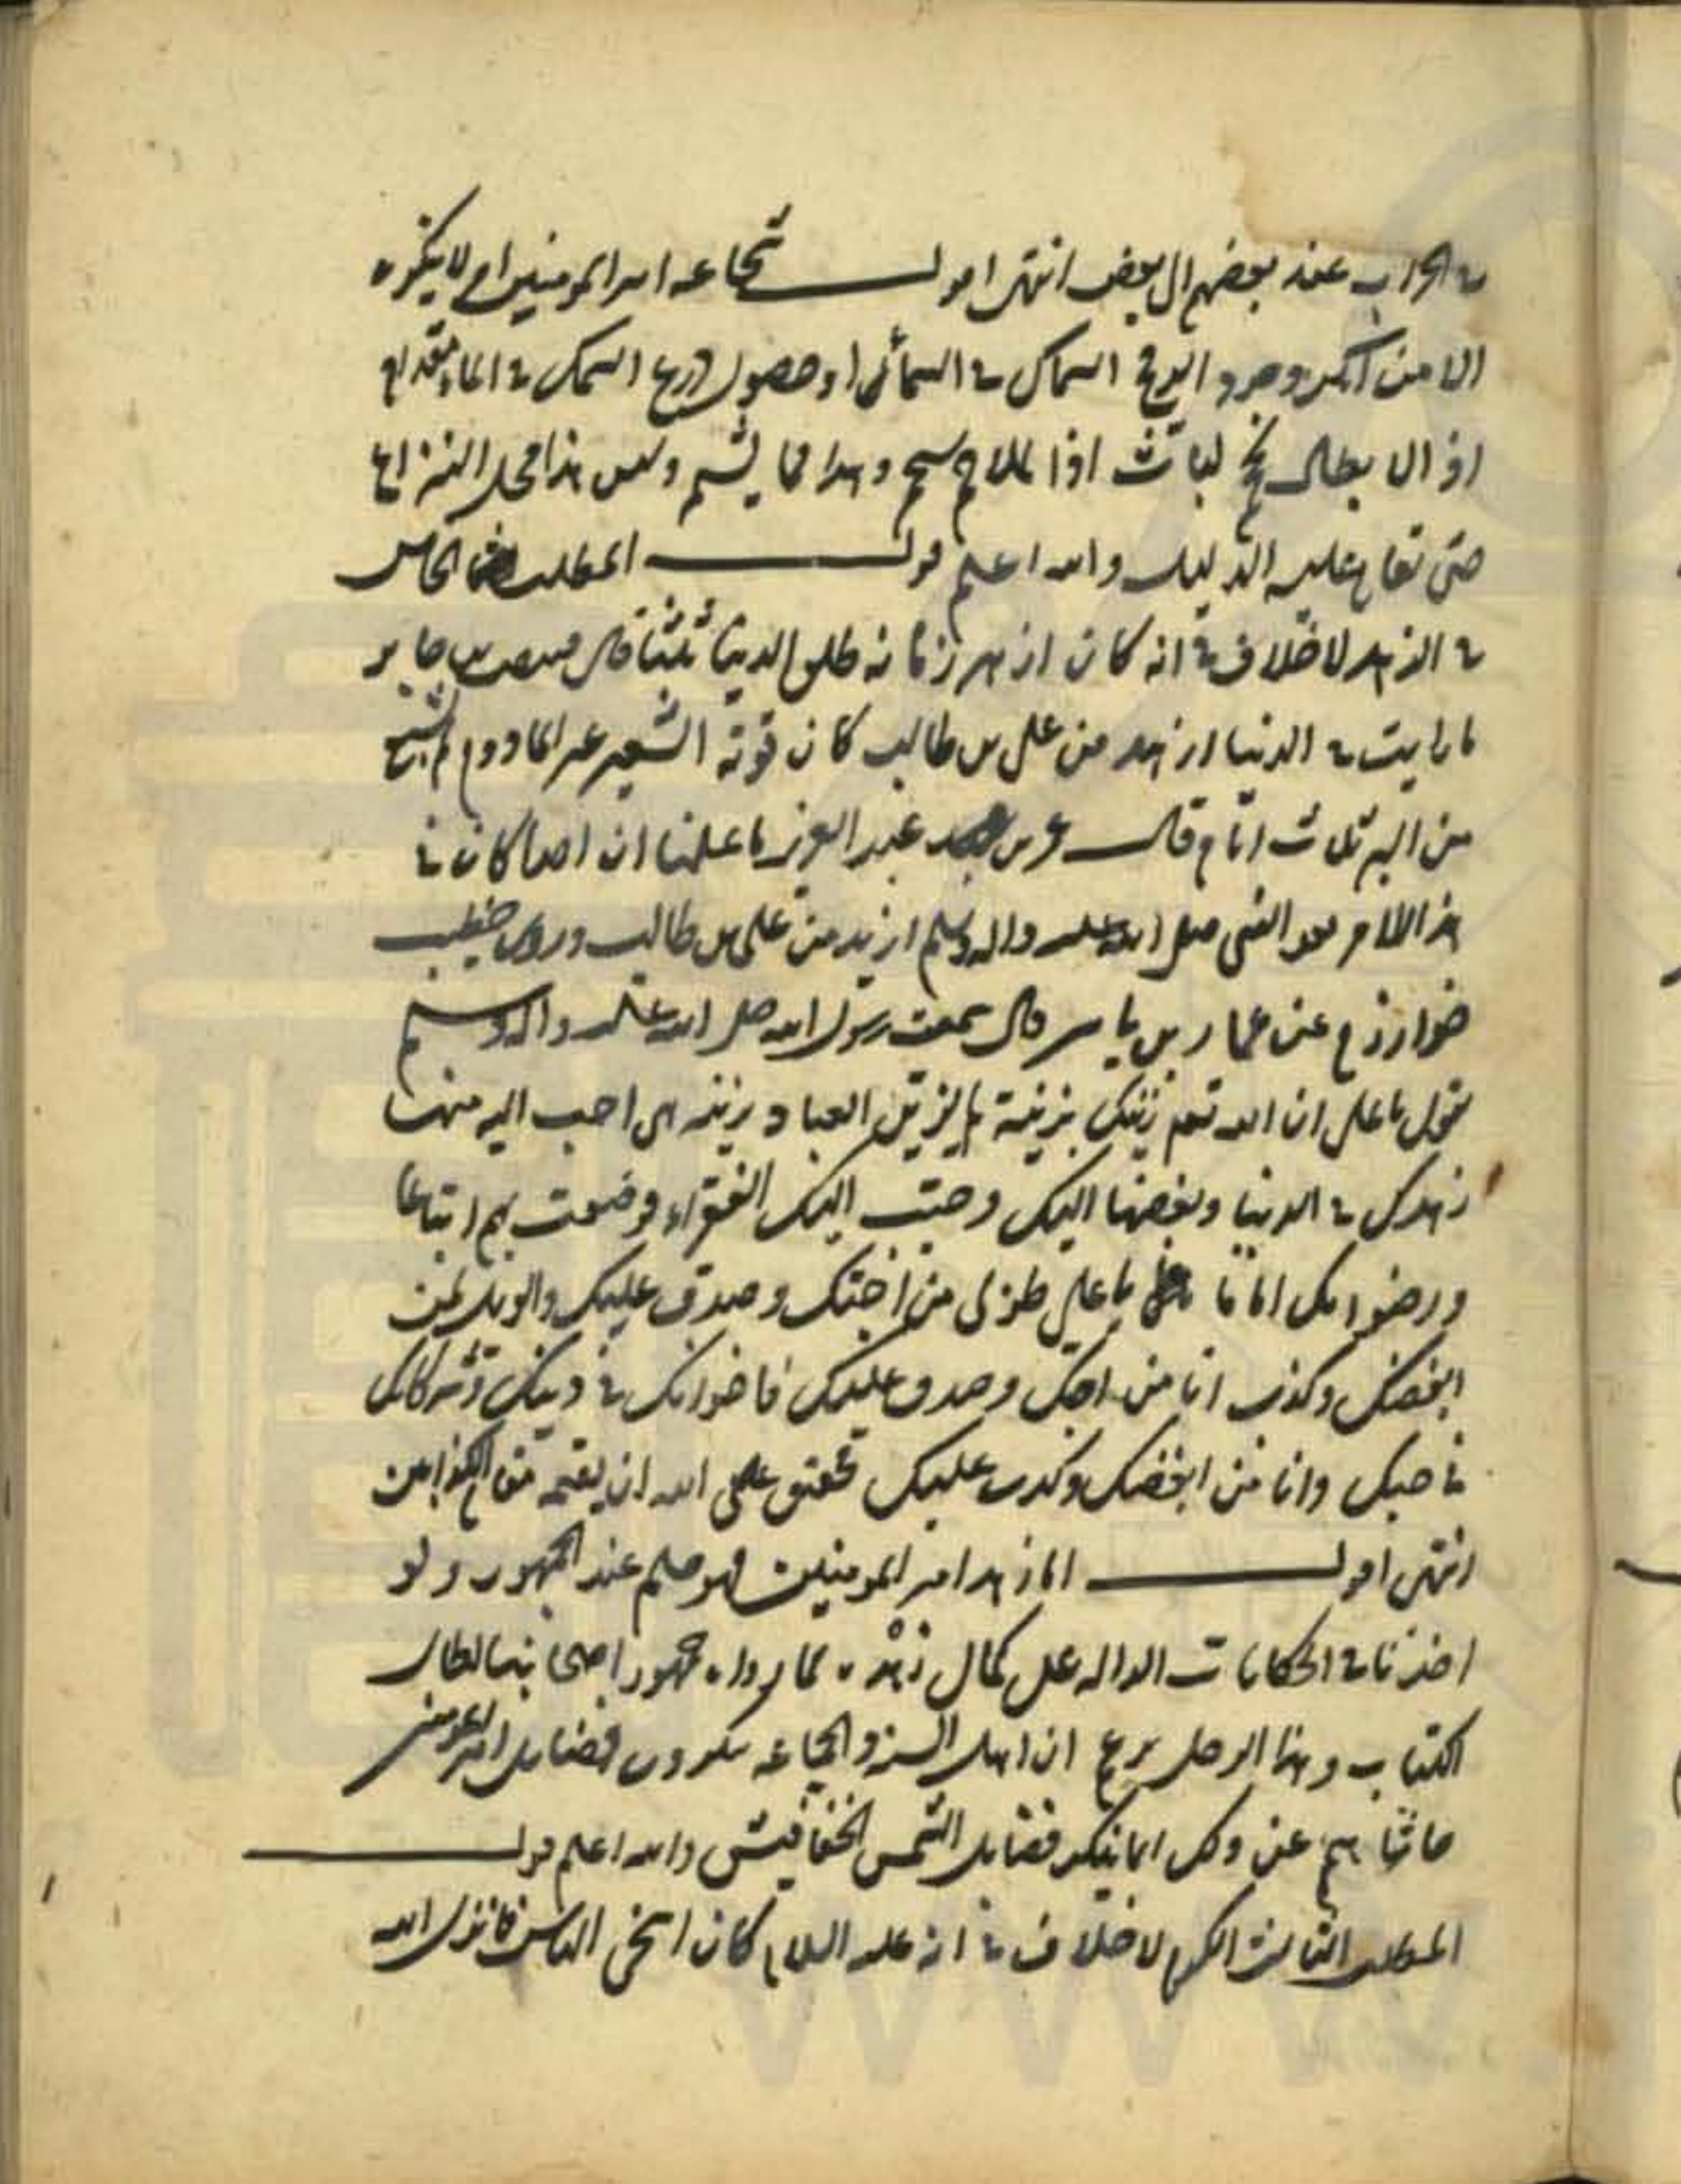 في الحراب عنه بعضهم الى بعض انتهى اقول شجاعه امير المومنين امر لا ينكره
الا من انكر وجود الرمح السماك في السماء او حصول درع السمك في الماء مقدام
اذ الابطال وهذا مما يسلم وليس هذا محل النزاع
حتى تقام عليه الدليل والله اعلم قوله المطلب الخامس
في الزهد لا خلاف في انه كان ازهد زمانه طلق الدنيا ثلثا قال قبيصة بن جابر
ما رايت في الدنيا ازهد من على بن طالب كان قوته الشعير غير المادوم لم يشبع
من البر ثلاث ايام قال عمر بن عبد العزيز ما علمنا ان احدا كان في
هذا الامر بعد النبى صلى الله عليه واله وسلم ازهد من على بن طالب وروى خطيب
خوارزم عن عمار بن ياسر قال سمعت رسول الله صلى الله عليه واله وسلم
يقول يا على ان الله تعم زينك بزينة لم يزين العباد بزينة هى احب اليه منها
زهدك في الدنيا وبغضها اليك وحبب اليك الفقراء فرضيت بهم اتباعا
ورضوا بك اماما يا على طوبى من احبك وصدق عليك والويل لمن
ابغضك وكذب اما من احبك وصدق عليك فاخوانك في دينك وشركائك
في وانا من ابغضك وكذب عليك فحقيق على الله ان يقيمه مقام الكذابين
انتهى اقول اما زهد امير المومنين فهو مسلم عند الجمهور ولو
اخذنا في الحكايات الداله على كمال زهده مما رواه جمهور اصحابنا لطال
الكتاب وهذا الرجل يزعم ان اهل السنة والجماعه ينكرون فضايل امير المومنين
حاشا هم عن ذلك انما ينكر فضايل الشمس الخفافيش والله اعلم قوله
المطلب الثالث الكرم لا خلاف في انه عليه السلام كان اسخى الناس فانزل الله